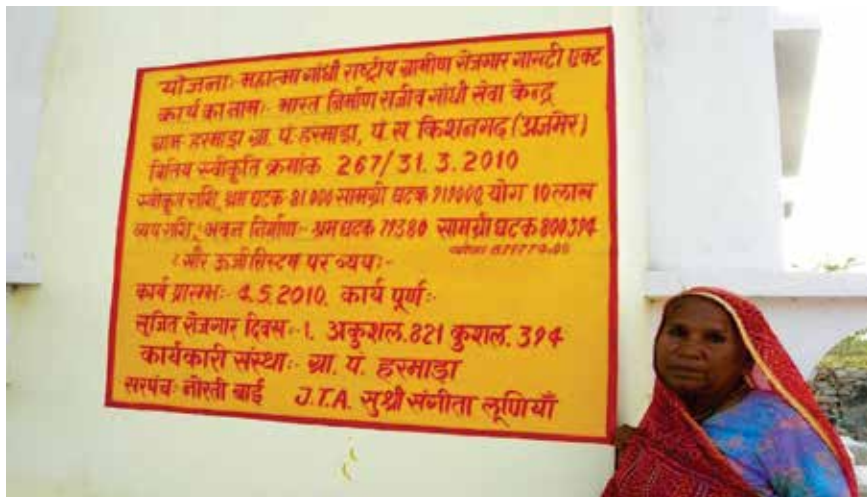 योजनाः महात्मा गांधी राष्ट्रीय ग्रामीण रोजगार गारन्टी एक्ट
कार्य का नामः- भारत निर्माण राजीव गांधी सेवा केन्द्र
ग्राम हरमाडा ग्रा. पं. हरमाडा, पं. स किशनगढ़ (अजमेर)
वित्तिय स्वीकृति क्रमांक 267/31.3.2010
स्वीकृत राशि, श्रम घटक 81000 सामग्री घटक 919000 योग 10 लाख
व्यय राशि, भवन निर्माण- श्रम घटक 79380 सामग्री घटक 800394
( सौर ऊर्जा सिस्टम पर व्ययः-
कार्य प्रारम्भः- 4.5.2010, कार्य पूर्णः-
सृजित रोजगार दिवसः-1. अकुशल. 821 कुशल. 394
कार्यकारी संस्थाः- ग्रा. पं. हरमाडा
सरपंचः नौरती बाई J.T.A. सुश्री संगीता लूणियाँ